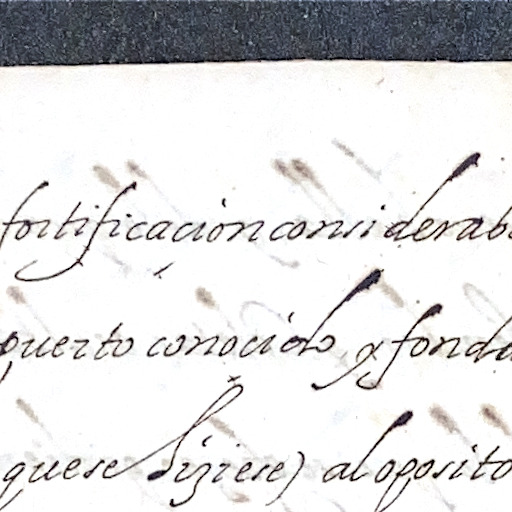 fortificacion considerab
puerto conocido, y fonda
quese hiziese) al oposito